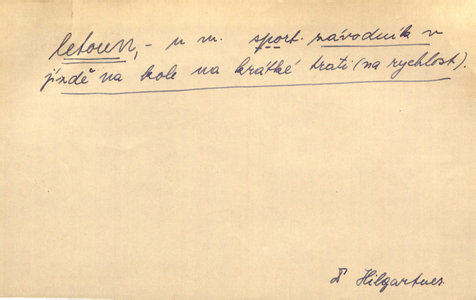 letoun, - u m. sport. závodník v
jízdě na kole na krátké trati (na rychlost).
Hilgartner